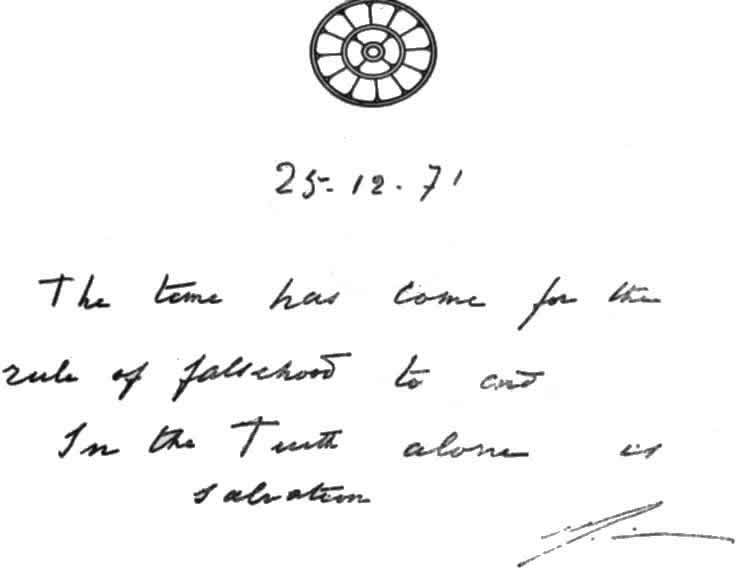 25-12.71
The time has come for the
rule of falsehood to end
In the Truth alone is
salvation